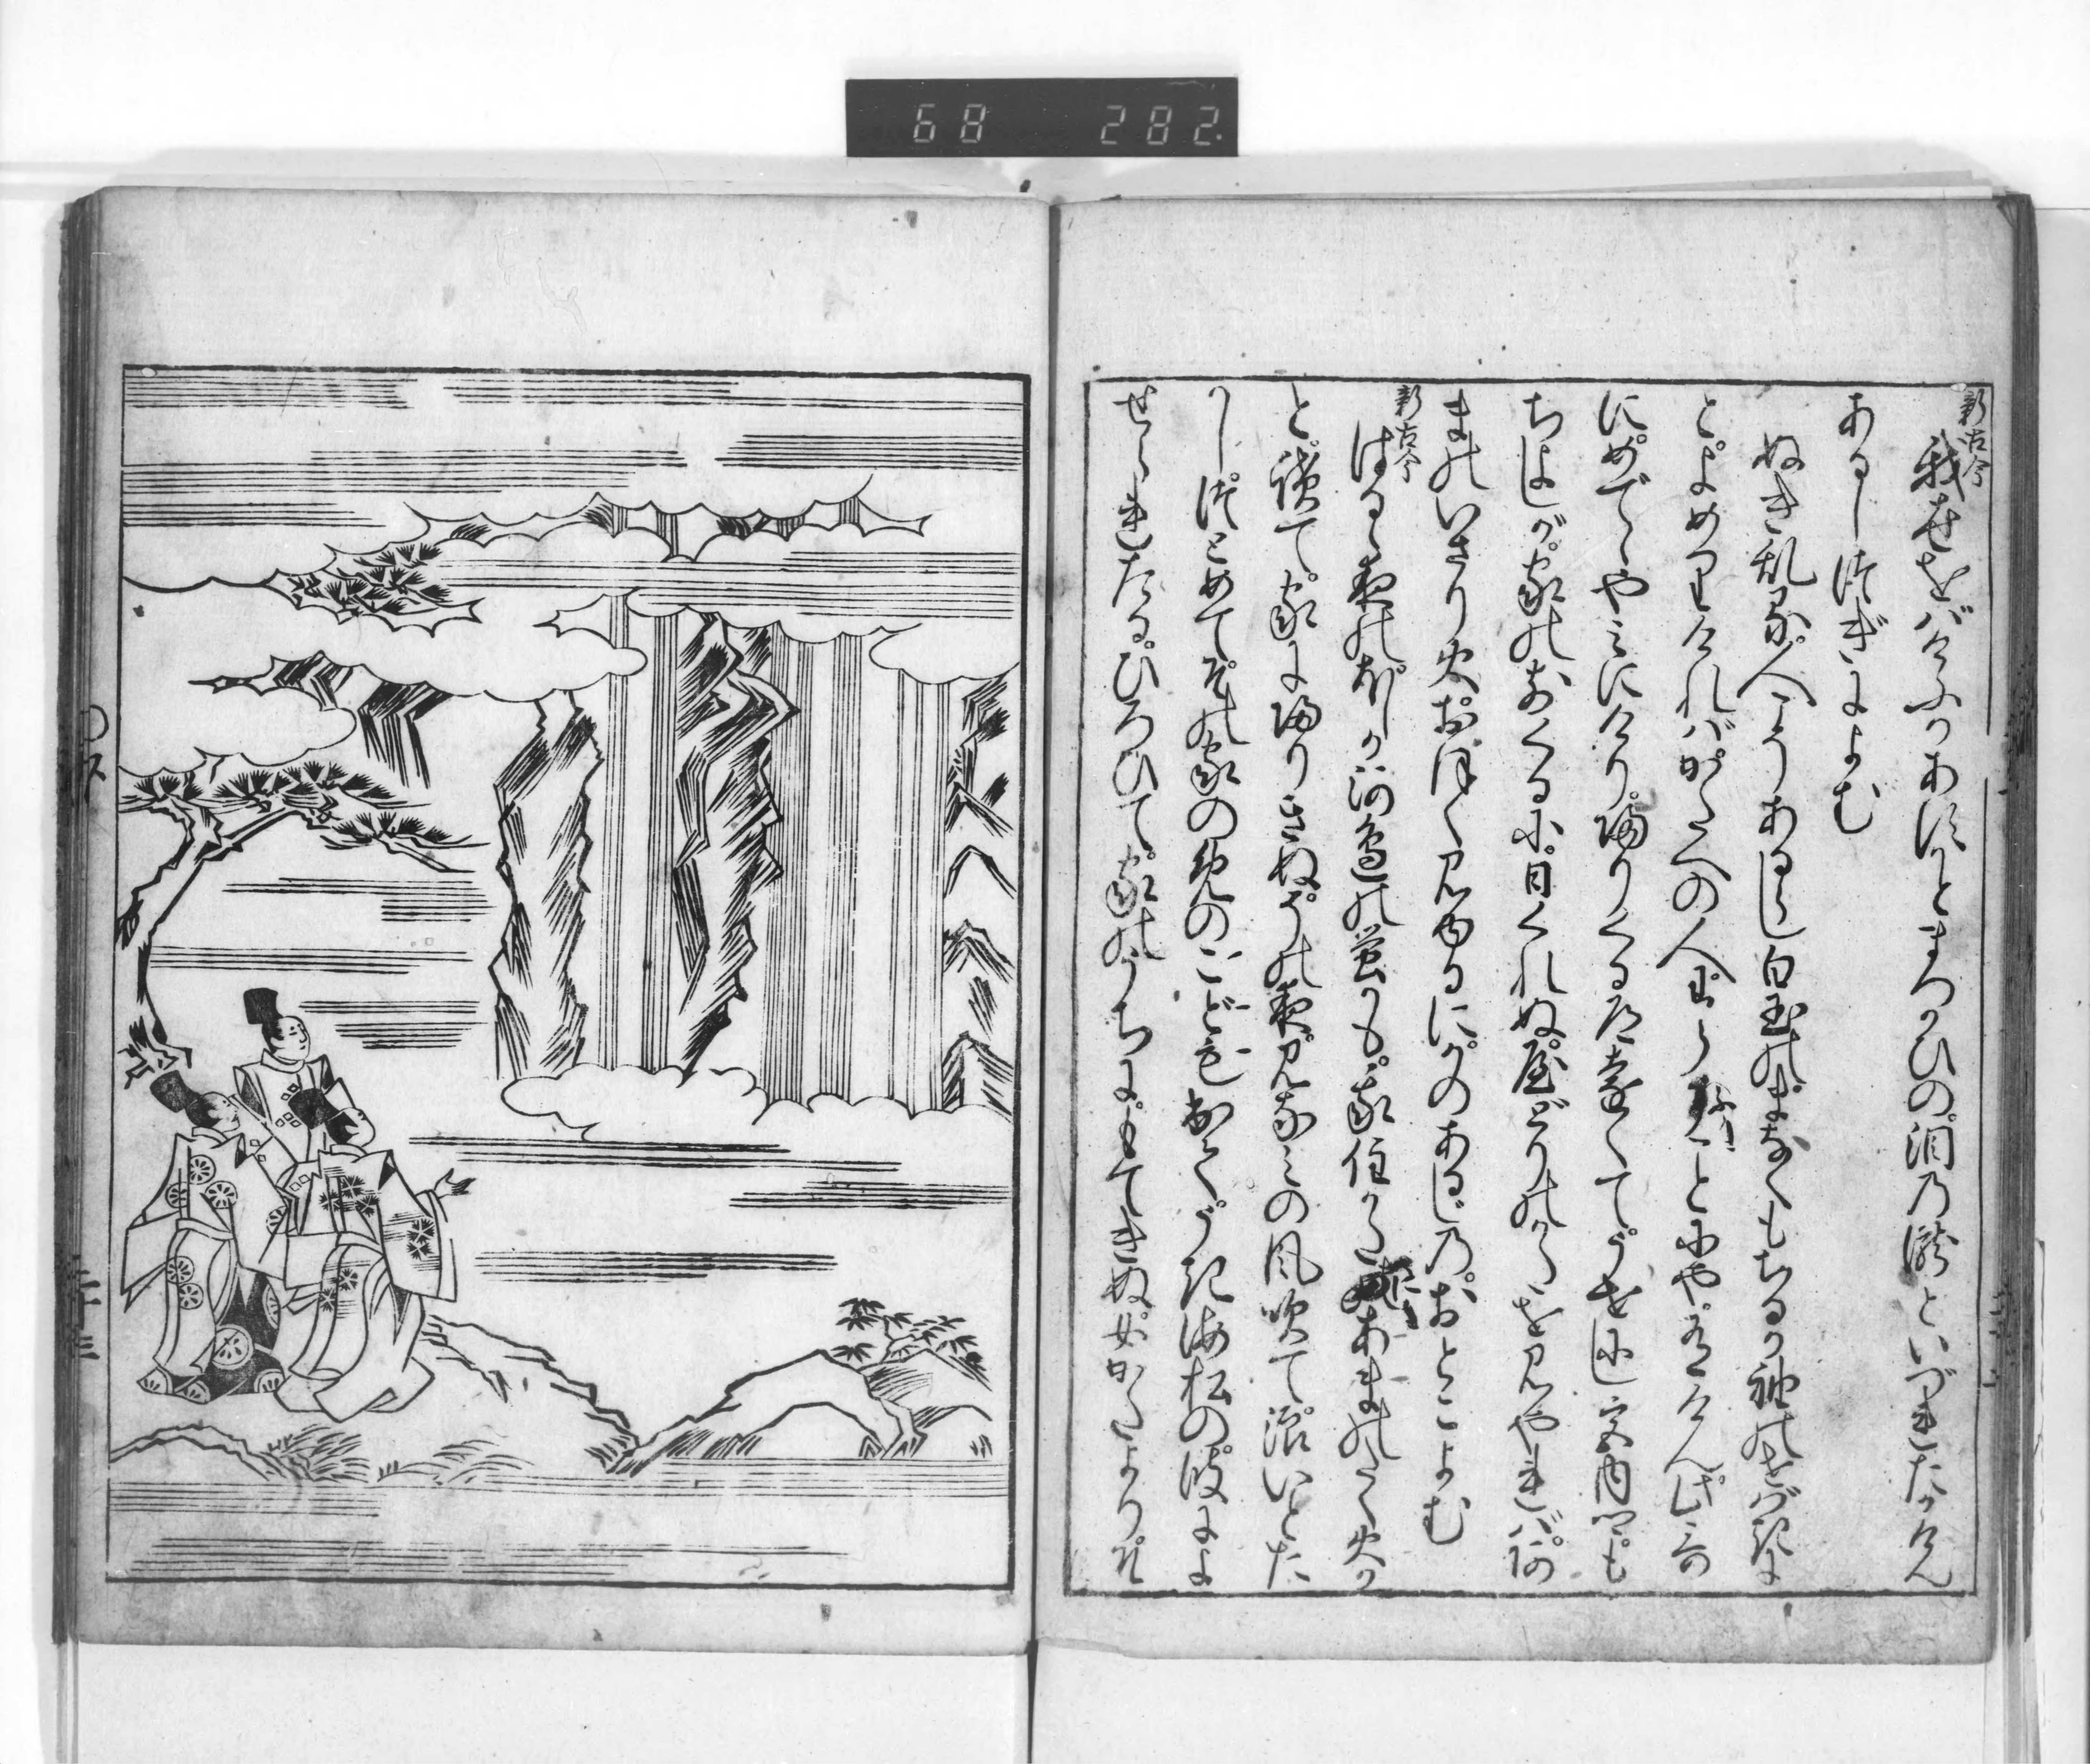 68 282
新古今
我世をばけふかあすかとまつかひの泪乃瀧といづれたかけん
あるじつぎによむ
ぬき乱る人こそあるらし白玉のまなくもちるか袖のせばきに
とよめりければかたへの人わらふことにや有けん此哥
にめでゝやみにけり帰りくる道遠くてうせにし宮内卿も
ちよしが家のまへくるに日くれぬ屋どりのかたを見やればあ
まのいさり火おほく見ゆるにかのあるじ乃おとこよむ
新古今
はるゝ夜のほしか河邊の螢かも我住かたにあまのたく火か
と讀て家に帰りきぬその夜見なみの風吹て浪いとた
かしつとめてその家のめのこども出てうき海松の波によ
せられたるひろひて家のうちにもてきぬ女かたよりそ